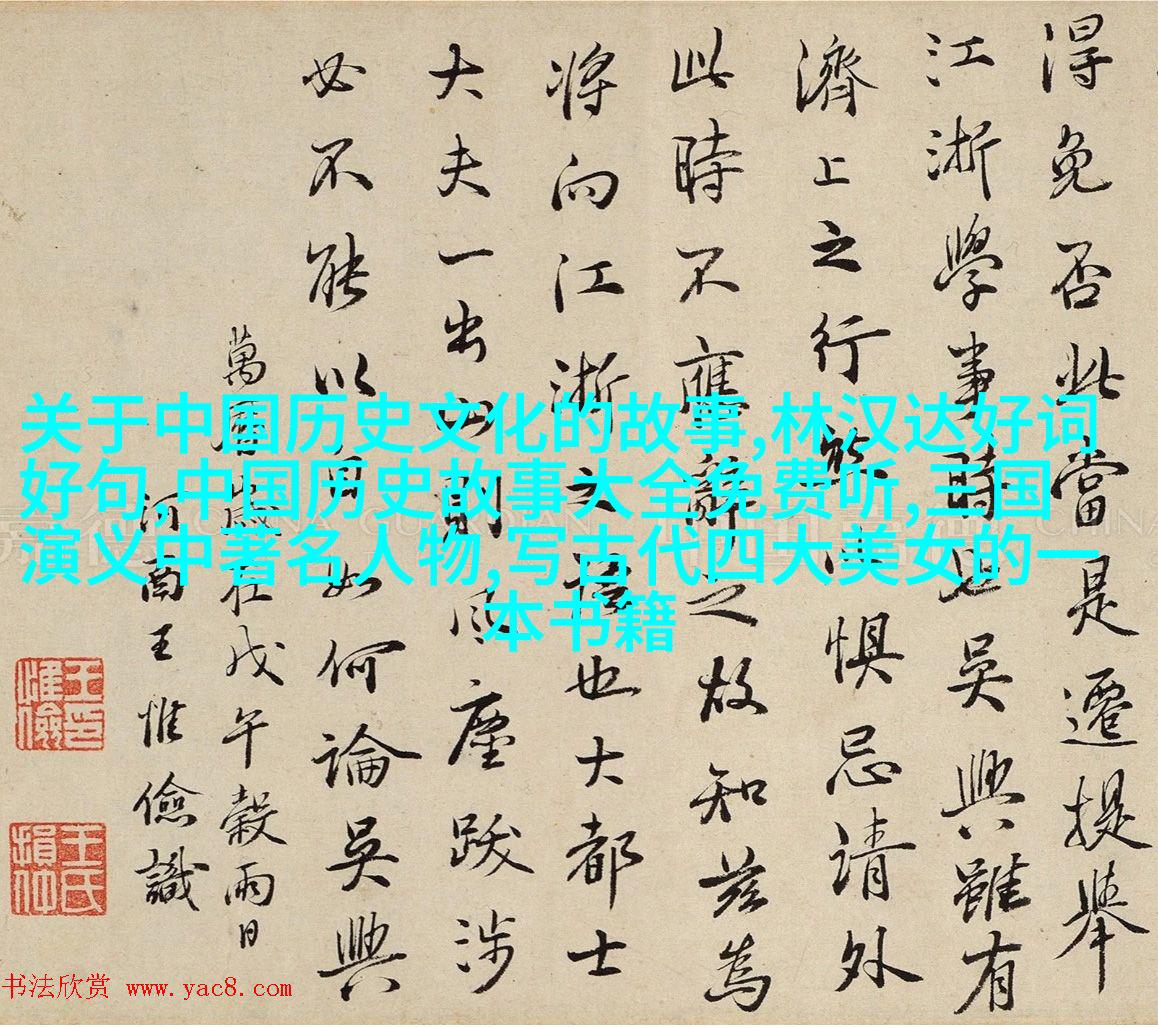 得免否此當是遷提舉
江浙學事時吳興雖有
濟上之行懼忌請外
此時不應辭之故知茲為
將向江浙之語也大都士
大夫一出則風塵跋涉
必不能以免如何論吳興
萬曆歲在戊午穀雨日
河南王惟儉識
王惟儉印
王氏損仲
关于中国历史文化的故事,林汉达好词
好句,中国历史故事大全免费听,三国
演义中著名人物,写古代四大美女的一
本书籍
CHINA GUARDIAN
书法欣赏 www.yac8.com